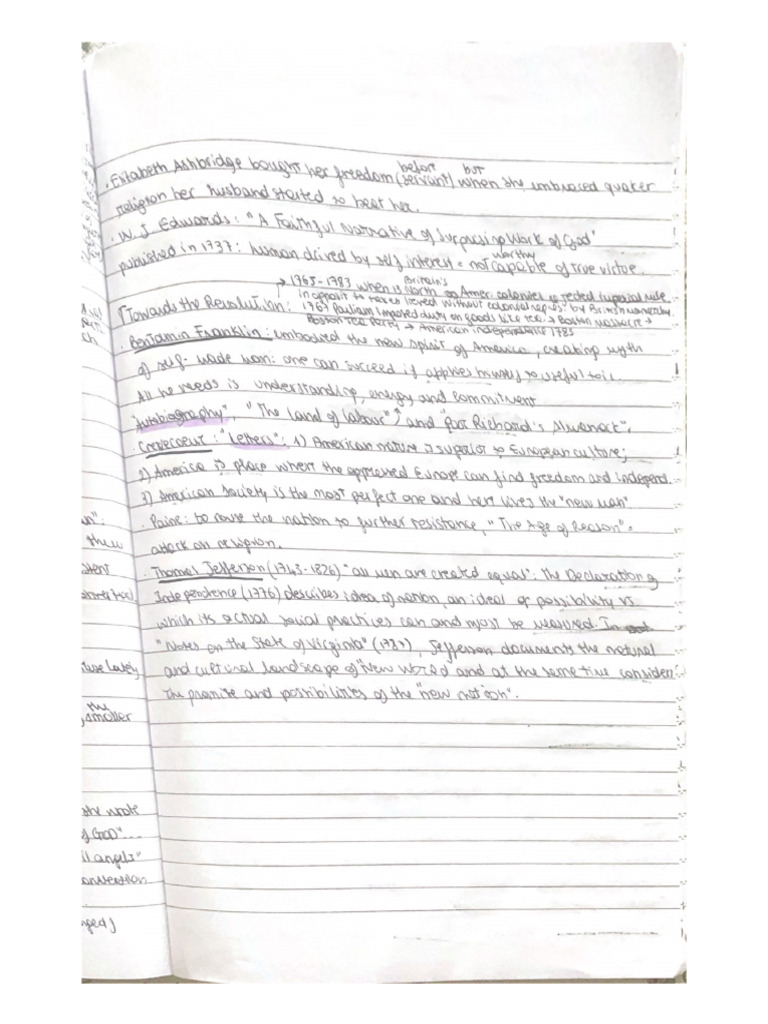 before but
· Elizabeth Ashbridge bought her freedom (servant) when she umbraced quaker
religion her husband started to beat her.
· W. J Edwards: "A Faithful Narrative of Surprising Work of God"
published in 1737: human drived by self interest = not capable of true virtue.
worthy
→ 1765-1783 when is Britain's North Amer. colonies rejected imperial rule
in opposit to taxes levied without colonial repres. by British monarchy.
[Towards the Revolution: 1767 Parliam. imposed duty on goods like tea → Boston massacre →
Boston Tea Party → American independence 1783
· Benjamin Franklin: umbodied the new spirit of America, creating myth
of self-made man: one can succeed if applies himself to useful toil.
All he needs is understanding, energy and commitment
"Autobiography", "The Land of Labour", and "Poor Richard's Almanack".
· Crevecoeur: "Letters": 1) American nature is superior to European culture;
2) America is place where the oppressed Europe can find freedom and independ.
3) American society is the most perfect one and here lives the "new man"
· Paine: to rouse the nation to further resistance, "The Age of Reason" =
attack on religion.
· Thomas Jefferson (1743-1826) "all men are created equal": the Declaration of
Independence (1776) describes idea of nation, an ideal of possibility vs
which its actual social practices can and must be measured.
"Notes on the State of Virginia" (1787), Jefferson documents the natural
and cultural landscape of "New World and at the same time consider
the promise and possibilities of the "new nation".
them
lately
the
smaller
she wrote
of GOD"...
angels"
convertion